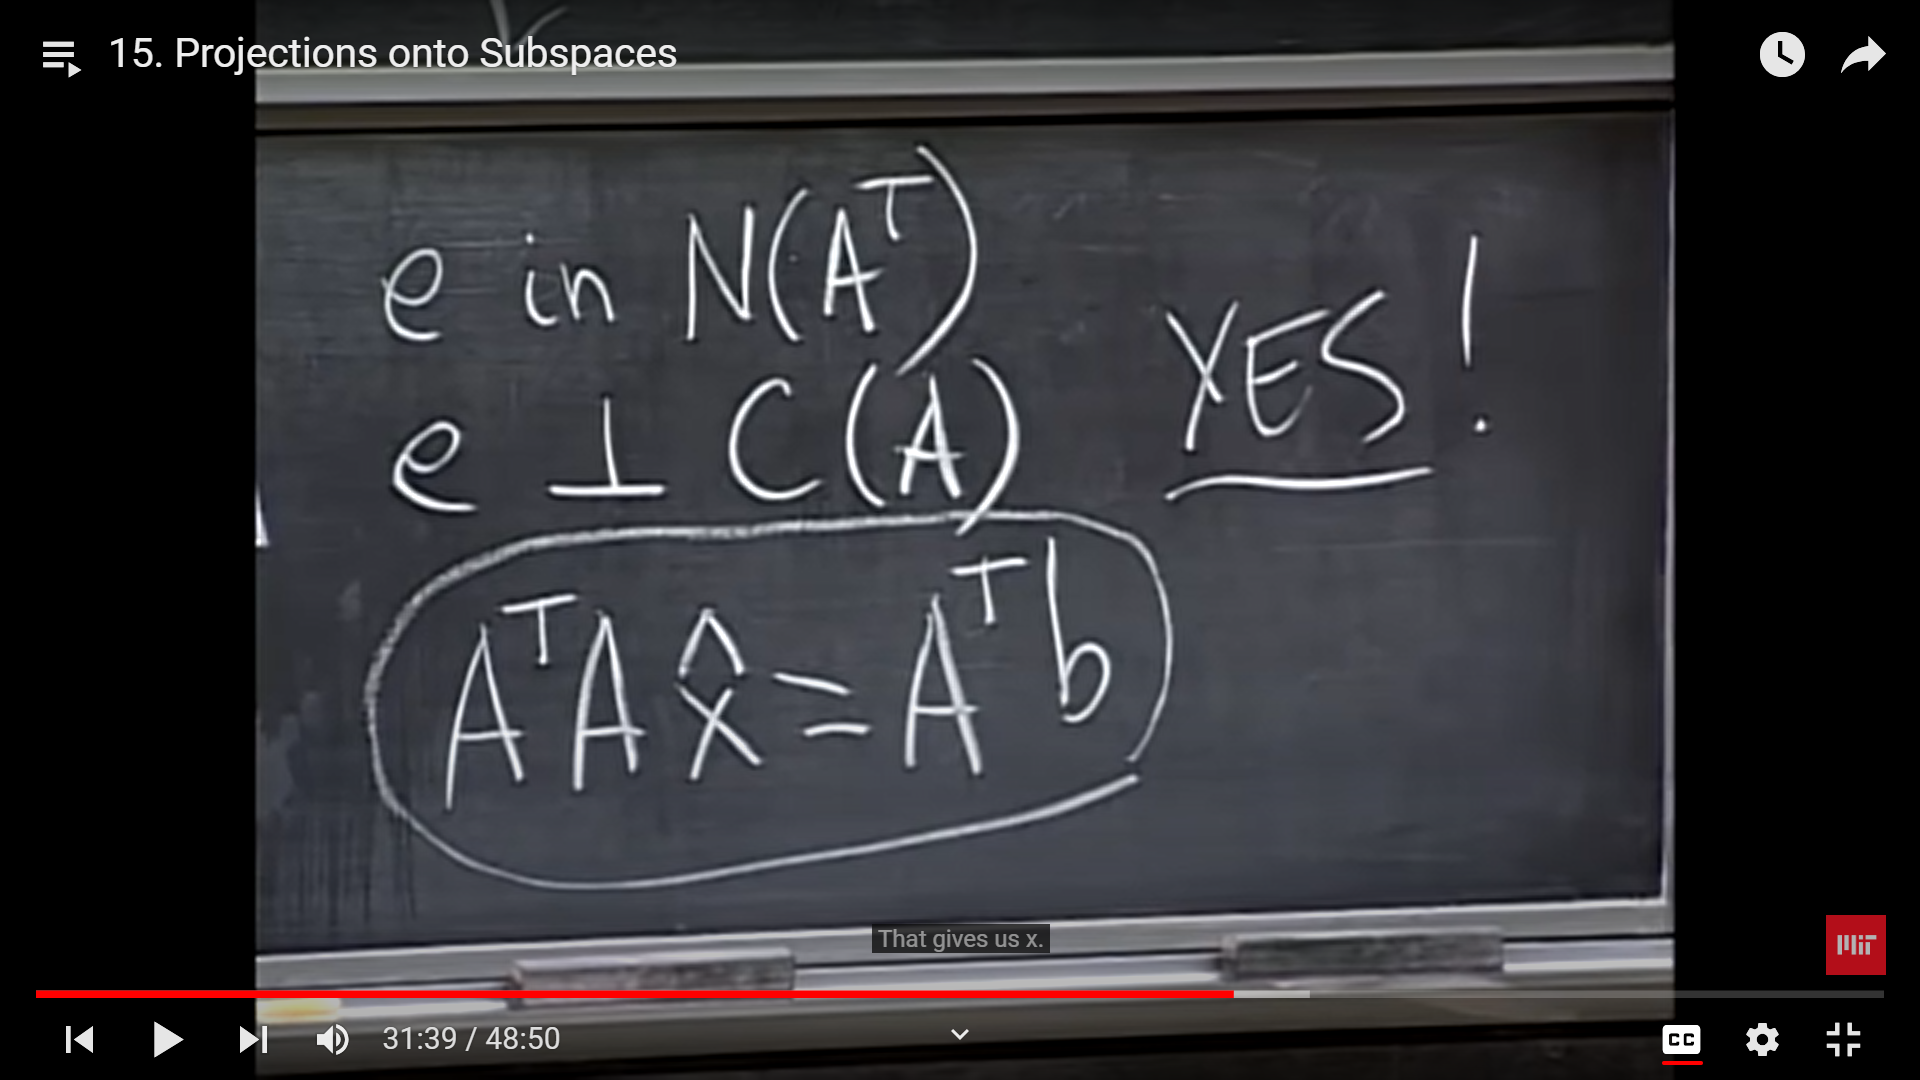 15. Projections onto Subspaces
e in N(Aᵀ)
e ⊥ C(A)
YES!
AᵀA x̂ = Aᵀb
That gives us x.
MIT
31:39 / 48:50
CC